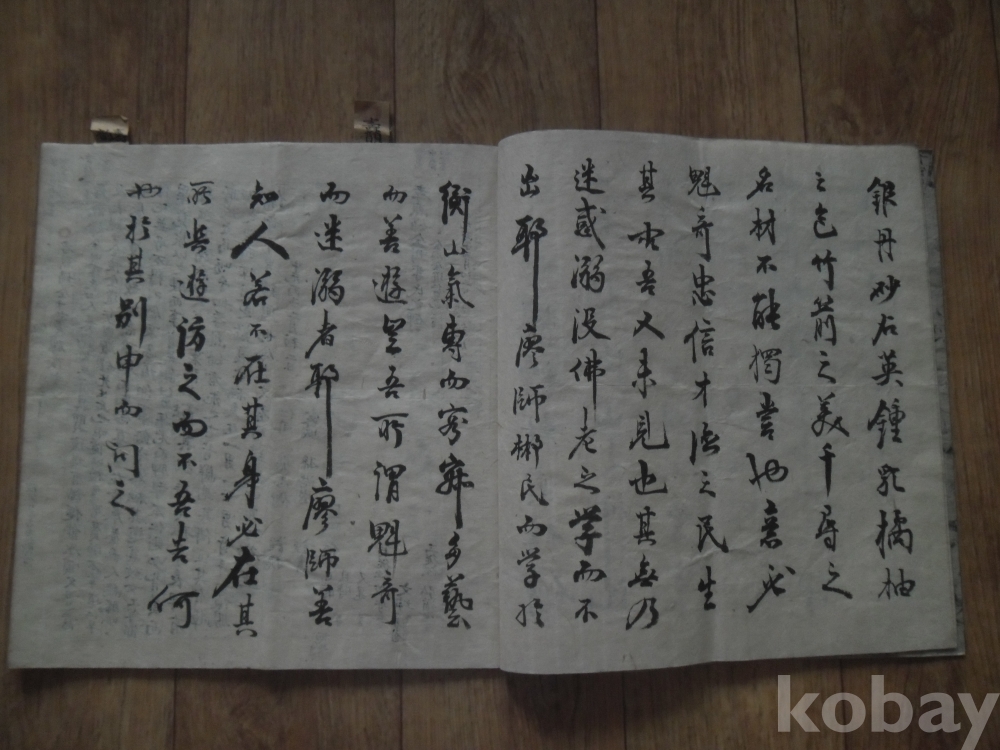 銀丹砂石英鍾乳橘柚
之包竹箭之美千尋之
名材不能獨當也意必
魁奇忠信才德之民生
其間吾又未見也其無乃
迷惑溺没佛老之学而不
出耶廖師郴民而学於
衡山氣專而容寂多藝
而善遊豈吾所謂魁奇
而迷溺者耶廖師善
知人若不在其身必在其
所與遊訪之而不吾告何
也於其別申而問之
kobay